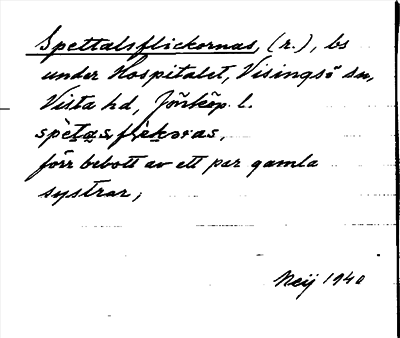 Spettalsflickornas, (r.), bs
under Hospitalet, Visingsö sn,
Vista hd, Jönköp. l.
förr bebott av ett par gamla
systrar;
Neij 1940